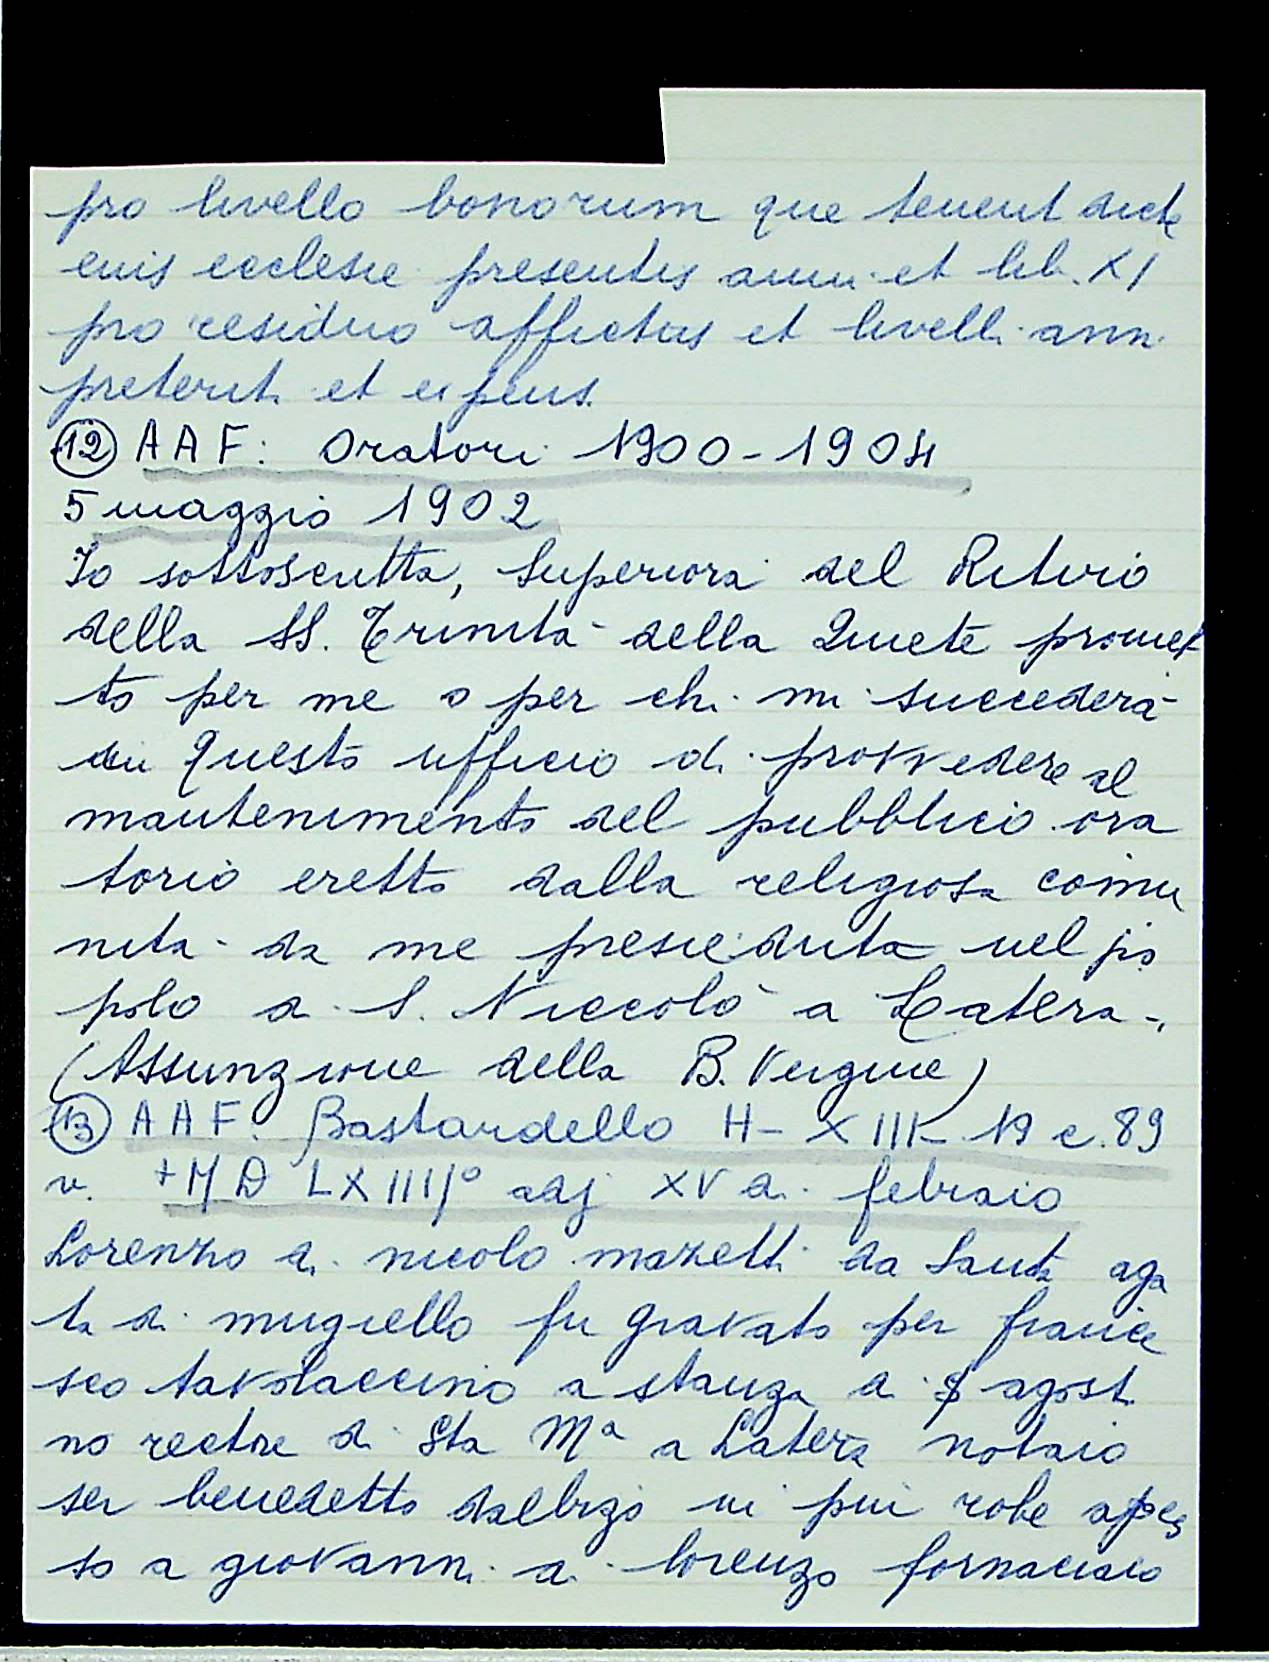 pro livello bonorum que tenent dicte
eius ecclesie presentis anni et lib. XI
pro residuo affictus et livelli ann.
preterit. et expens.
(12) AAF: Oratori 1900-1904
5 maggio 1902
Io sottoscritta, Superiora del Ritiro
della SS. Trinità della Quiete promet
to per me o per chi mi succederà
in questo ufficio di provvedere al
mantenimento del pubblico ora
torio eretto dalla religiosa comu
nità da me presieduta nel po
polo di S. Niccolò a Latera.
(Assunzione della B. Vergine)
(13) AAF: Bastardello H-XIII-19 c.89
v. +MD LXIIII° adj XV di febraio
Lorenzo di nicolo mazetti da Santa aga
ta di mugiello fu gravato per france
sco tavolaccino a stanza di S agosti
no rectore di Sta Mª a Latera notaio
ser benedetto dalbizo in piu robe apes
so a giovanni di lorenzo fornaciaio